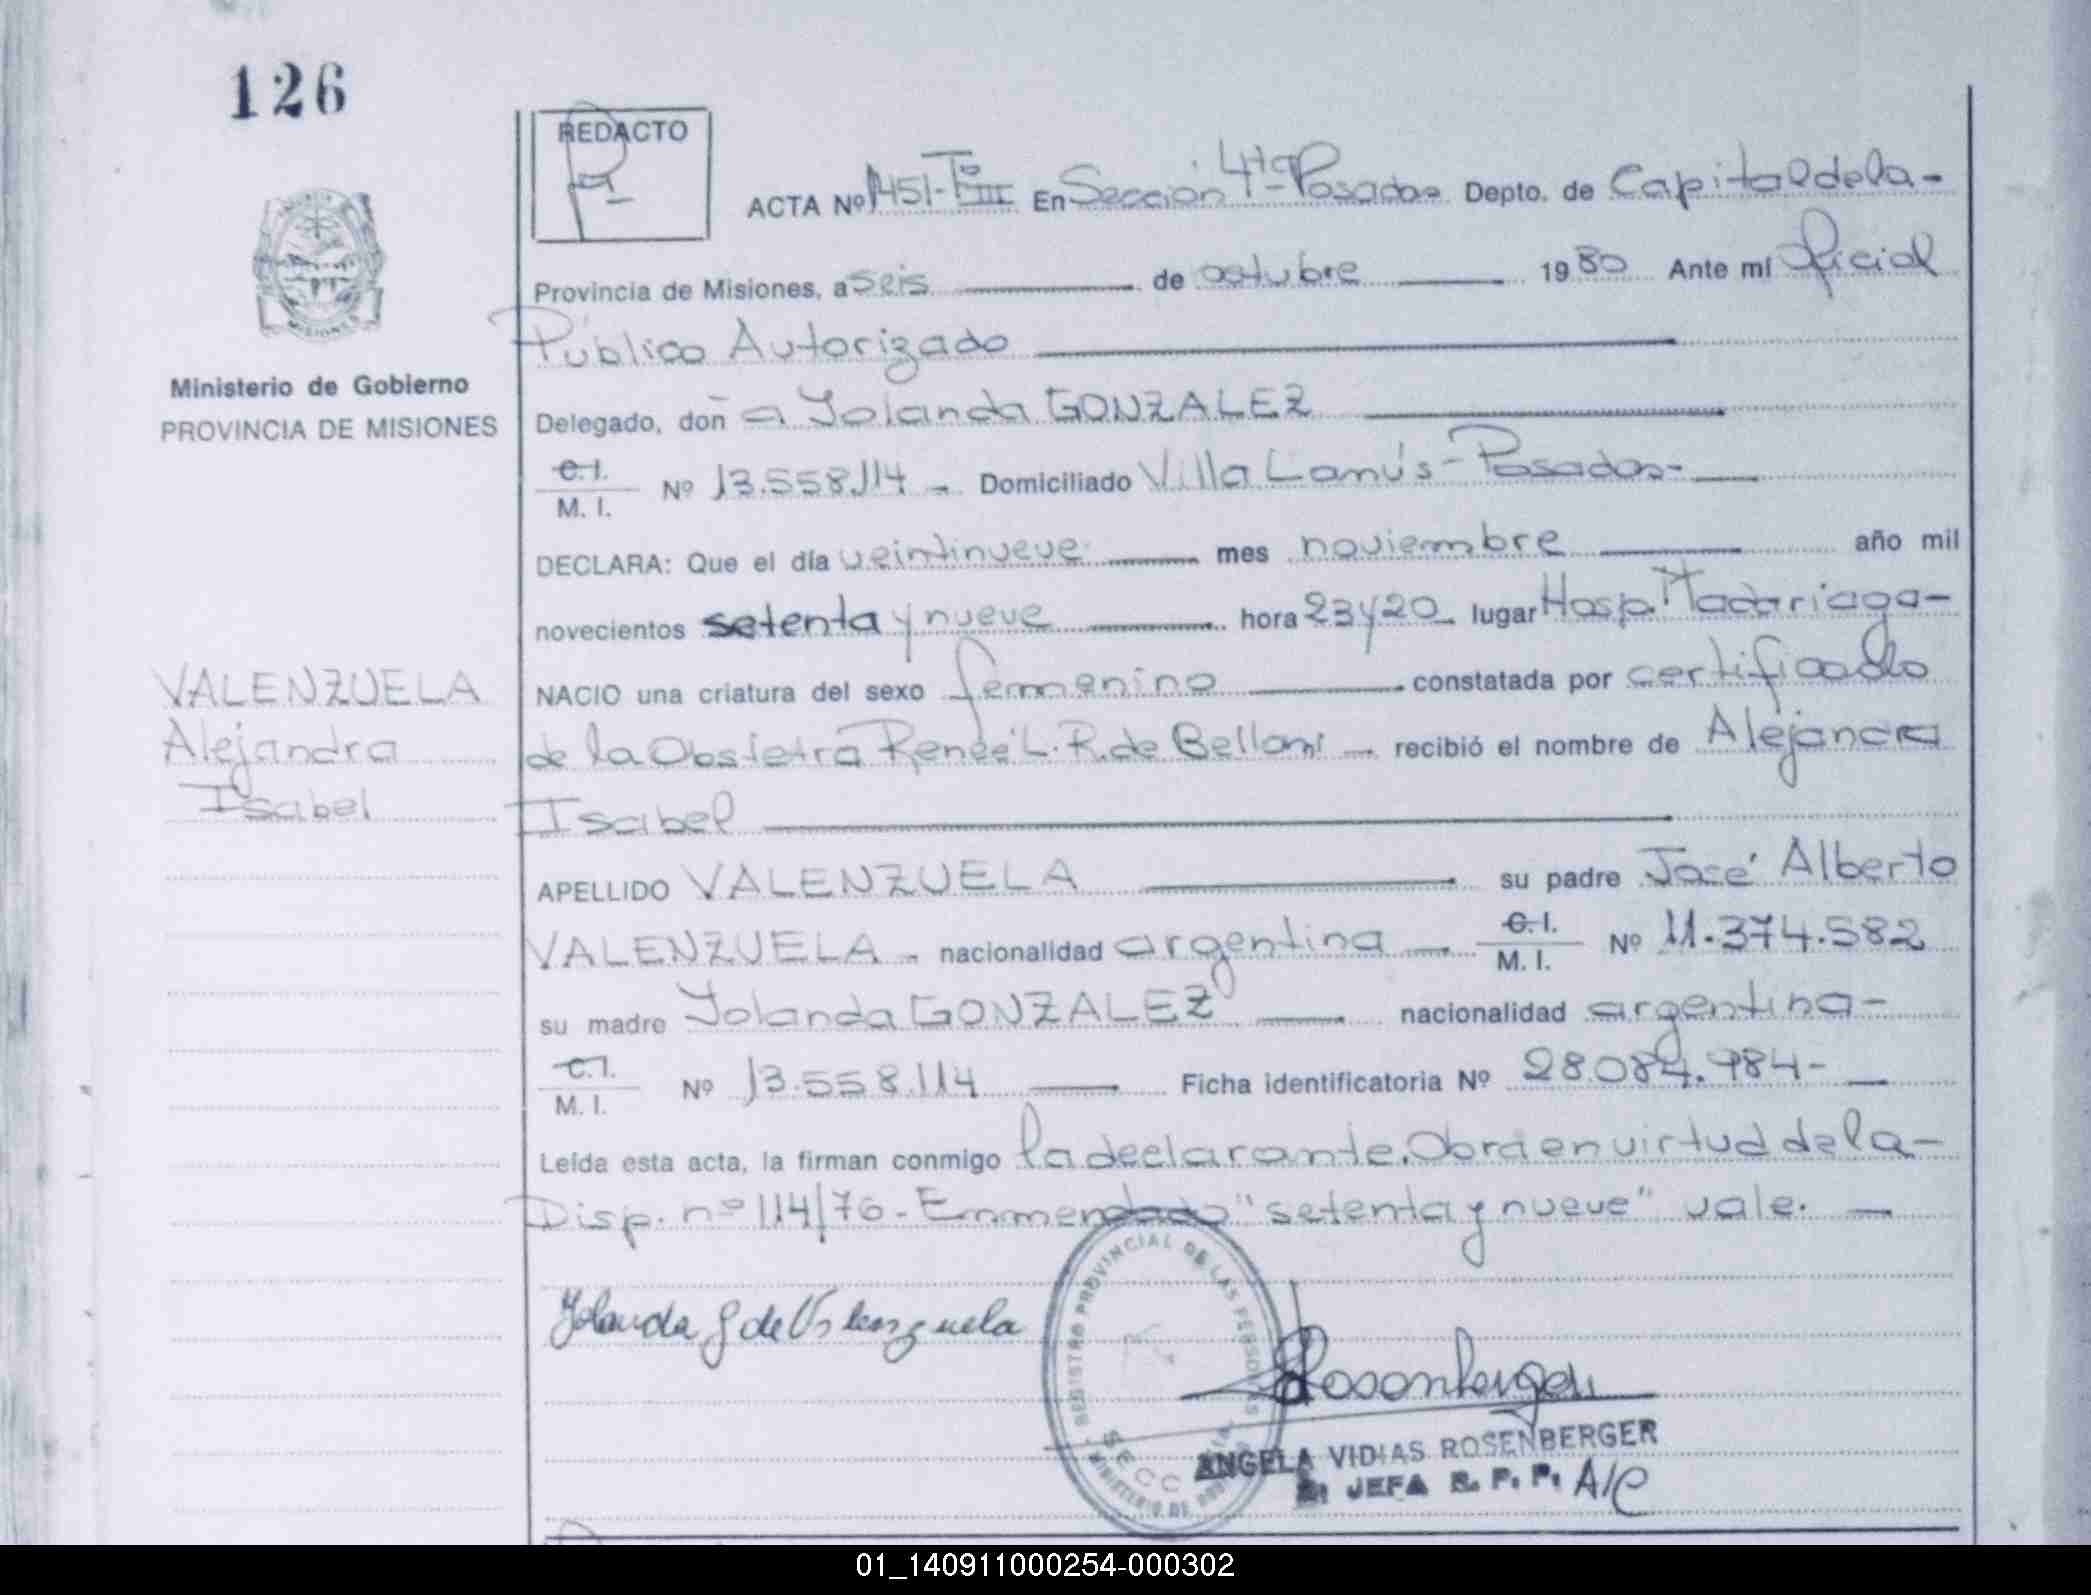 126
REDACTO
ACTA Nº 1451-Tº III En Sección 4ta Posadas Depto. de Capital de la-
Provincia de Misiones, a seis de octubre 1980 Ante mí Oficial
Público Autorizado
Ministerio de Gobierno
PROVINCIA DE MISIONES
Delegado, doñ a Yolanda GONZALEZ
C.I.
M. I. Nº 13.558.114 - Domiciliado Villa Lanús - Posadas-
DECLARA: Que el día veintinueve mes noviembre año mil
novecientos setenta y nueve hora 23y20 lugar Hosp. Madariaga-
VALENZUELA
Alejandra
Isabel
NACIO una criatura del sexo femenino constatada por certificado
de la Obstetra Renée L. R. de Belloni recibió el nombre de Alejandra
Isabel
APELLIDO VALENZUELA su padre José Alberto
VALENZUELA - nacionalidad argentina C.I. M. I. Nº 11.374.582
su madre Yolanda GONZALEZ nacionalidad argentina-
C.I.
M. I. Nº 13.558.114 Ficha identificatoria Nº 28.084.984-
Leída esta acta, la firman conmigo la declarante. Obra en virtud de la-
Disp. nº 114/76- Enmendado "setenta y nueve" vale.
Yolanda G de Valenzuela
REGISTRO PROVINCIAL DE LAS PERSONAS
SECC
MINISTERIO DE
Rosenberger
ANGELA VIDIAS ROSENBERGER
JEFA R. P. P. A/C
01_140911000254-000302